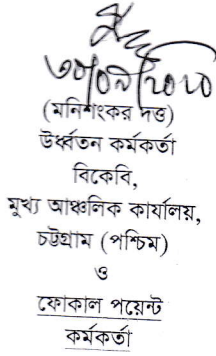 (মনিশংকর দত্ত)
উর্ধ্বতন কর্মকর্তা
বিকেবি,
মুখ্য আঞ্চলিক কার্যালয়,
চট্টগ্রাম (পশ্চিম)
ও
ফোকাল পয়েন্ট
কর্মকর্তা